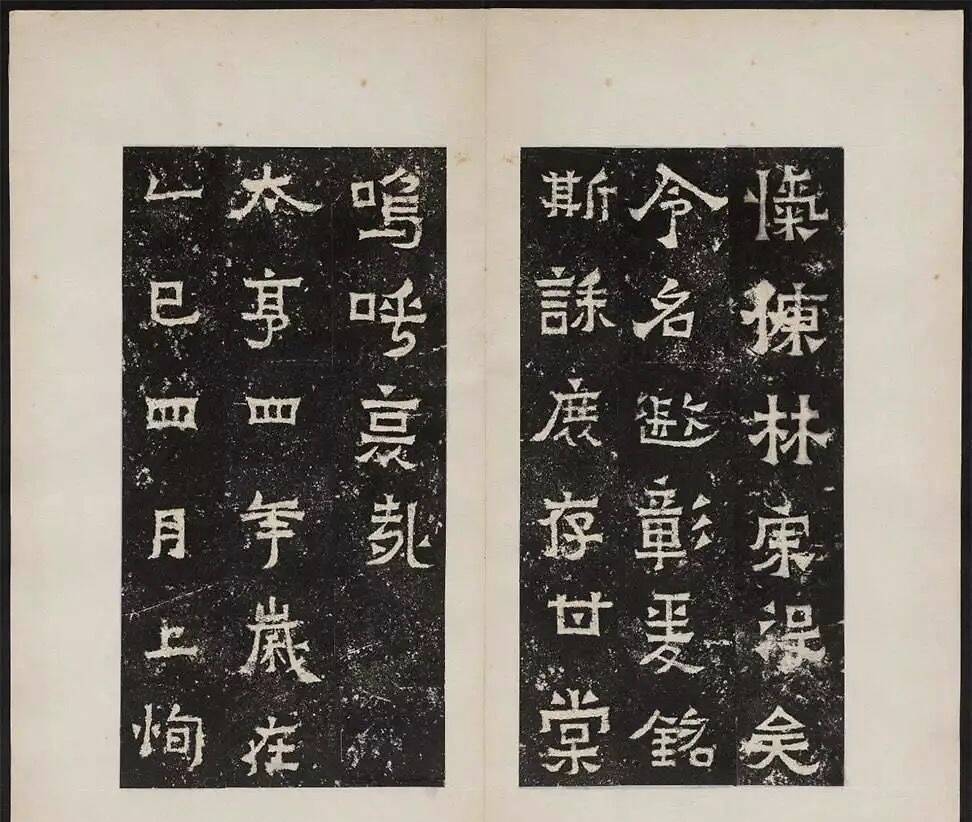 愾慷林宗沒矣
令名遐彰爰銘
斯誄庶存甘棠
嗚呼哀哉
太亨四年歲在
乙巳四月上恂